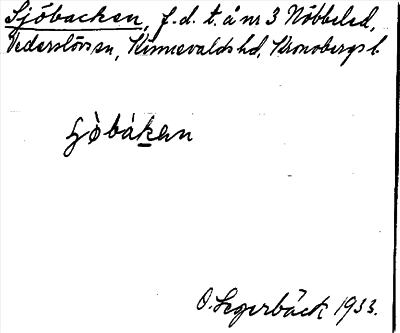 Sjöbacken, f.d. t. å nr 3 Nöbbeled,
Vederslövs sn, Kinnevalds hd, Kronobergs l.
O. Segerbäck 1933.